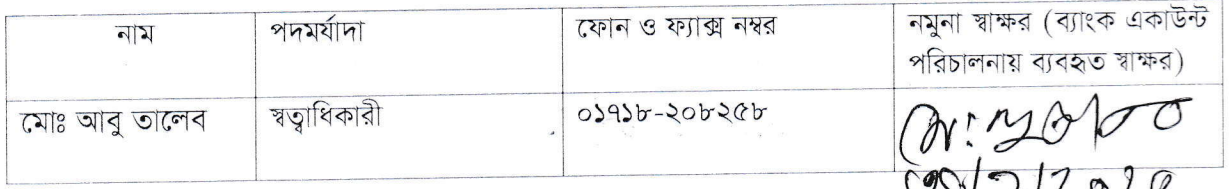 নাম পদমর্যাদা ফোন ও ফ্যাক্স নম্বর নমুনা স্বাক্ষর (ব্যাংক একাউন্ট
পরিচালনায় ব্যবহৃত স্বাক্ষর)
মোঃ আবু তালেব স্বত্বাধিকারী ০১৭১৮-২০৮২৫৮